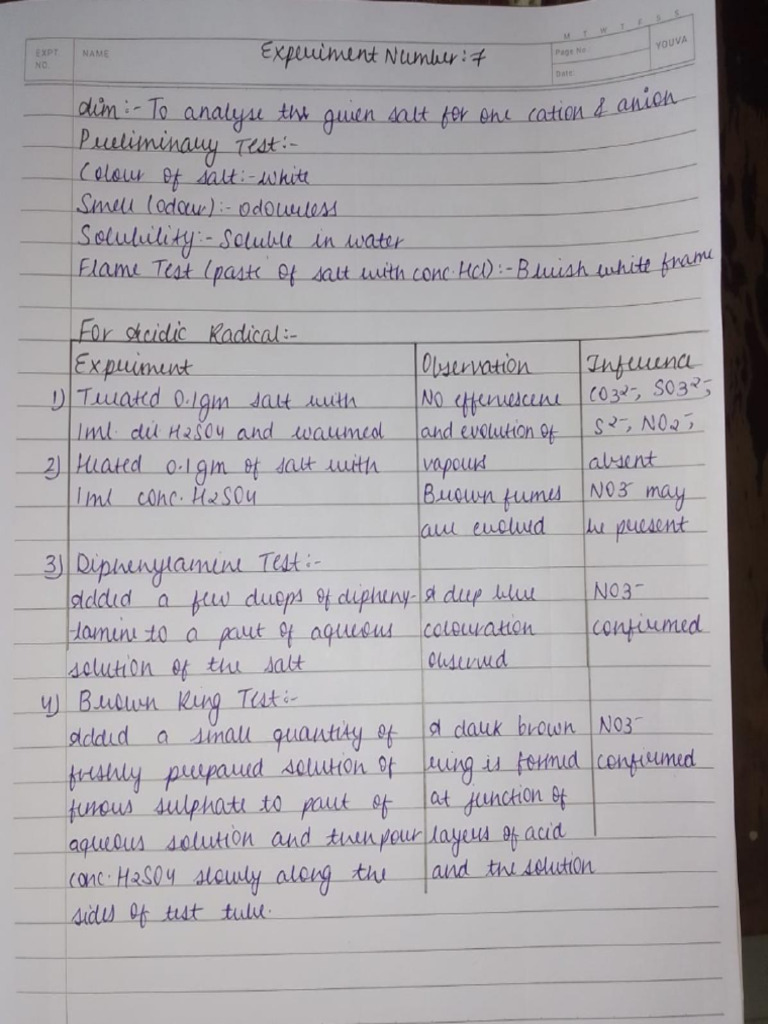 M T W T F S S
EXPT. NO. NAME Experiment Number:7 Page No. YOUVA
Date:
Aim:- To analyse the given salt for one cation & anion
Preliminary Test:-
Colour of salt:- white
Smell (odour):- odourless
Solubility:- Soluble in water
Flame Test (paste of salt with conc. HCl):- Bluish white frame
For Acidic Radical:-
Experiment Observation Inference
1) Treated 0.1gm salt with No effervescene CO3²⁻, SO3²⁻,
1ml. dil H2SO4 and warmed and evolution of S²⁻, NO2⁻,
2) Heated 0.1gm of salt with vapours absent
1ml conc. H2SO4 Brown fumes NO3⁻ may
are evolved be present
3) Diphenylamine Test:-
Added a few drops of dipheny- A deep blue NO3⁻
lamine to a part of aqueous colouration confirmed
solution of the salt observed
4) Brown Ring Test:-
Added a small quantity of A dark brown NO3⁻
freshly prepared solution of ring is formed confirmed
ferrous sulphate to part of at junction of
aqueous solution and then pour layers of acid
conc. H2SO4 slowly along the and the solution
sides of test tube.